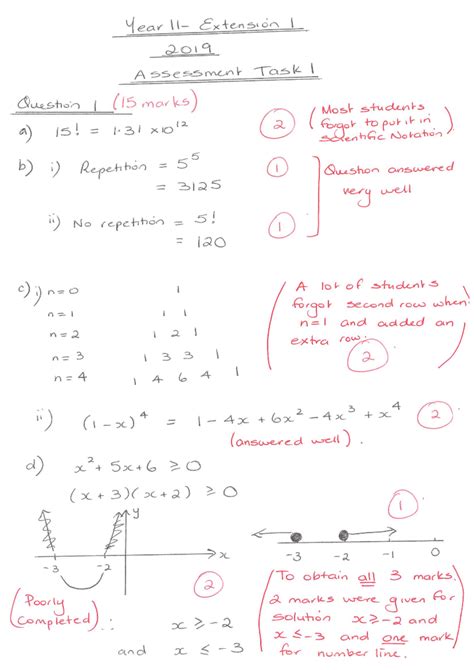 Year 11- Extension 1
2019
Assessment Task 1
Question 1 (15 marks)
a) 15! = 1.31 ×10¹²
2
(Most students
forgot to put it in
Scientific Notation)
b) i) Repetition = 5⁵
= 3125
1
ii) No repetition = 5!
= 120
1
Question answered
very well
c) i) n=0 1
n=1 1 1
n=2 1 2 1
n=3 1 3 3 1
n=4 1 4 6 4 1
(A lot of students
forgot second row when
n=1 and added an
extra row.
2)
ii) (1-x)⁴ = 1-4x+6x²-4x³+x⁴
2
(answered well).
d) x²+5x+6 ≥ 0
(x+3)(x+2) ≥ 0
1
y
x
-3 -2
-3 -2 -1 0
2
(Poorly
Completed)
∴ x ≥ -2
and x ≤ -3
(To obtain all 3 marks.
2 marks were given for
solution x≥-2 and
x ≤ -3 and one mark
for number line.)